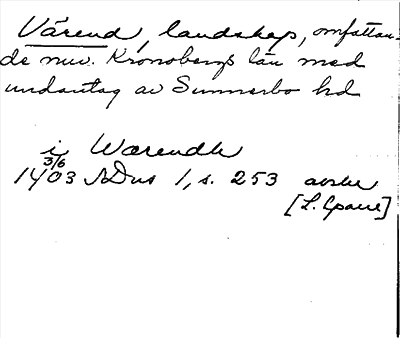 Värend, landskap, omfattan-
de nuv. Kronobergs län med
undantag av Sunnerbo hd
i Wærendh
3/6
1403 SDns 1, s. 253 avskr
[L. Sparre]